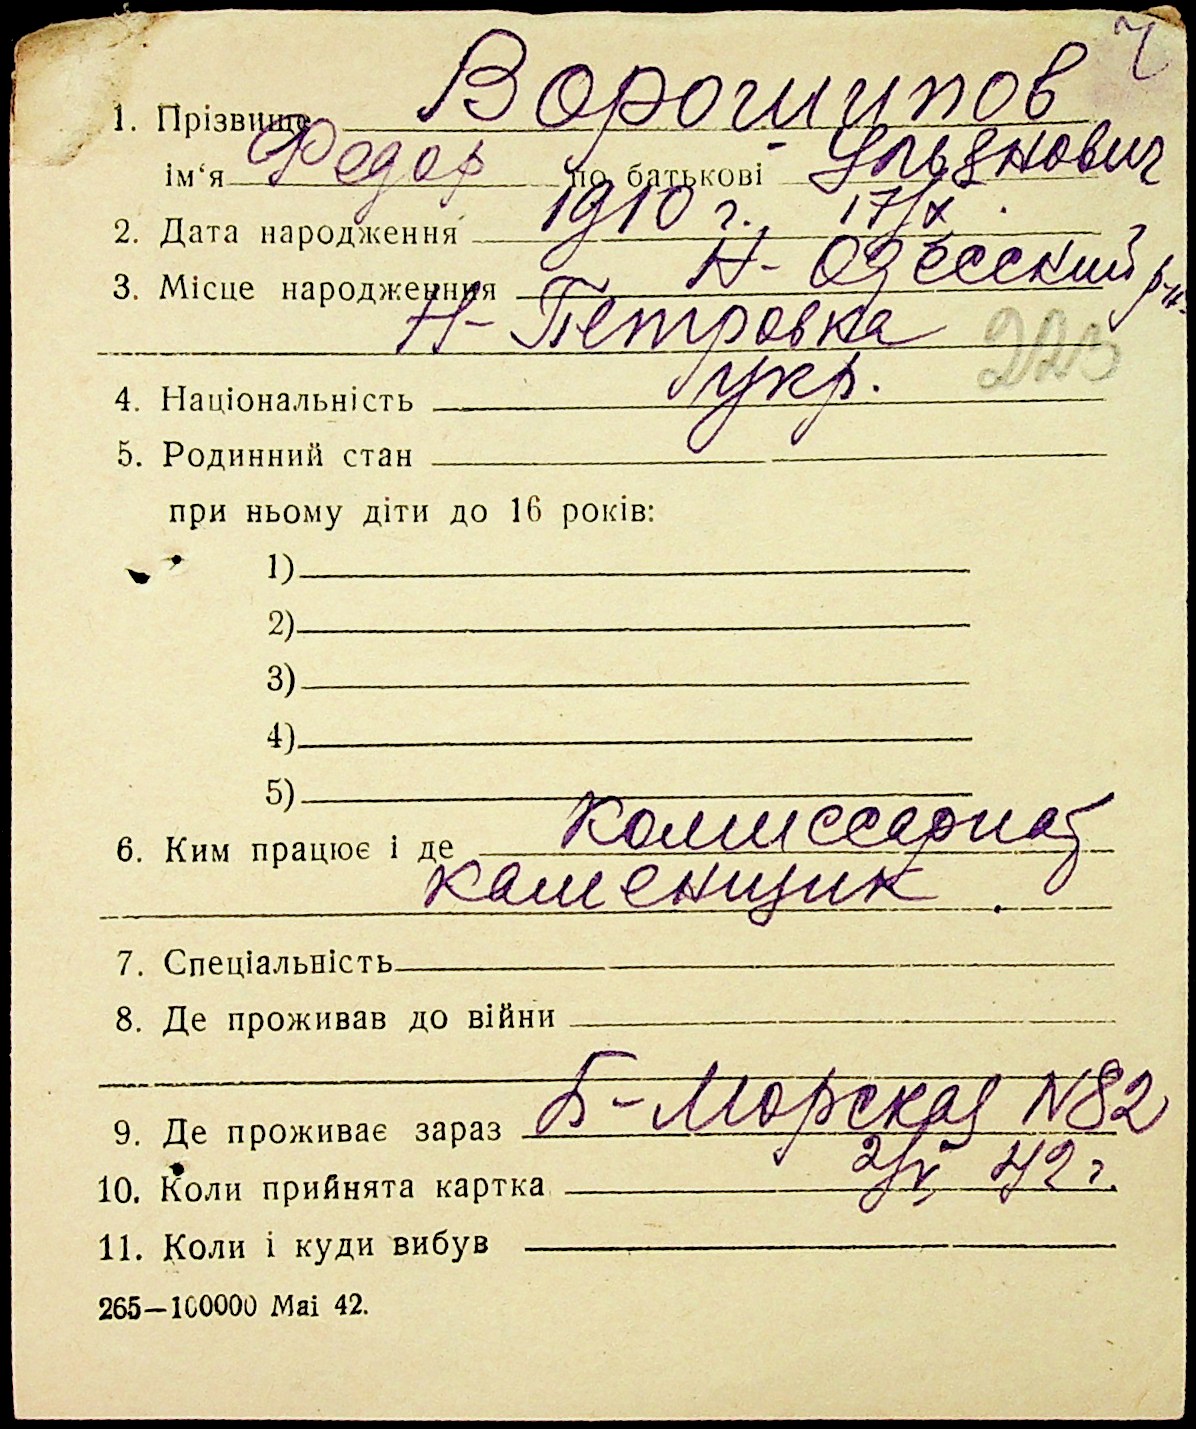 Ч
1. Прізвище Ворошилов
ім‘я Федор по батькові Ульянович
2. Дата народження 1910 г., 17/X.
3. Місце народження Н-Одесский р-н.
Н-Петровка
223
4. Національність укр.
5. Родинний стан
при ньому діти до 16 років:
1)
2)
3)
4)
5)
6. Ким працює і де Комиссариат
каменщик.
7. Спеціальність
8. Де проживав до війни
9. Де проживає зараз Б-Морская N82
10. Коли прийнята картка 42 г.
11. Коли і куди вибув
265—100000 Mai 42.